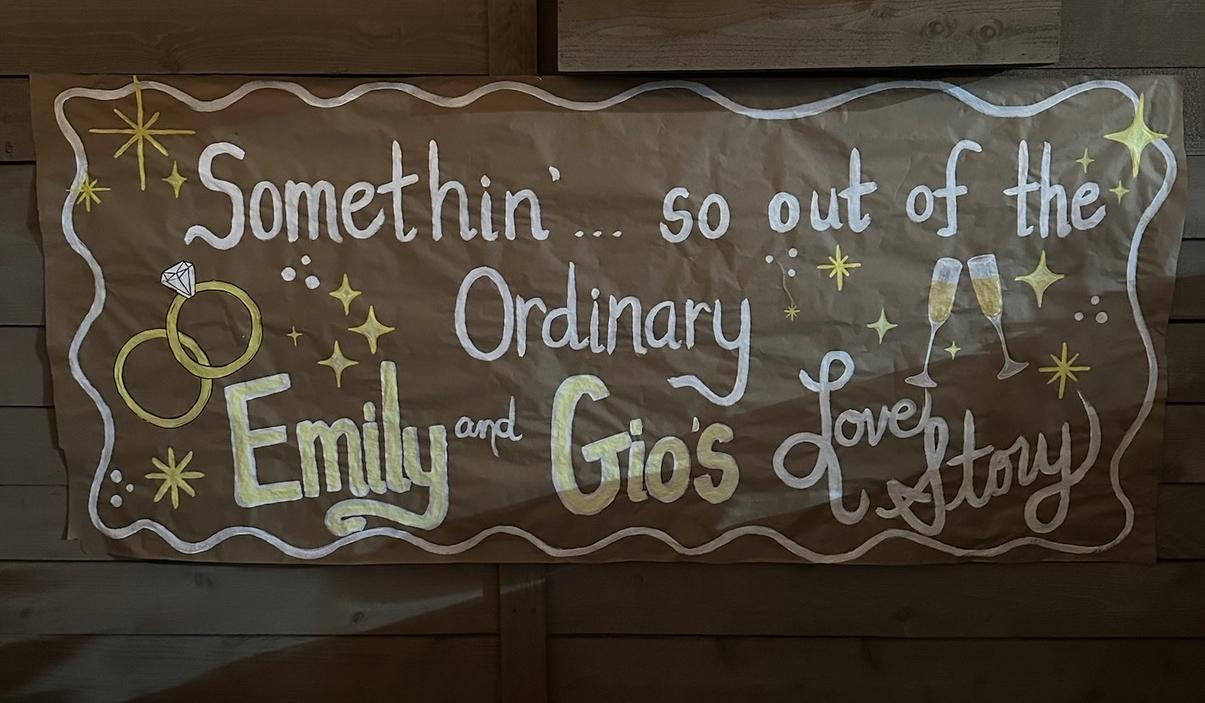 Somethin'... so out of the
Ordinary
Emily and Gio's Love Story